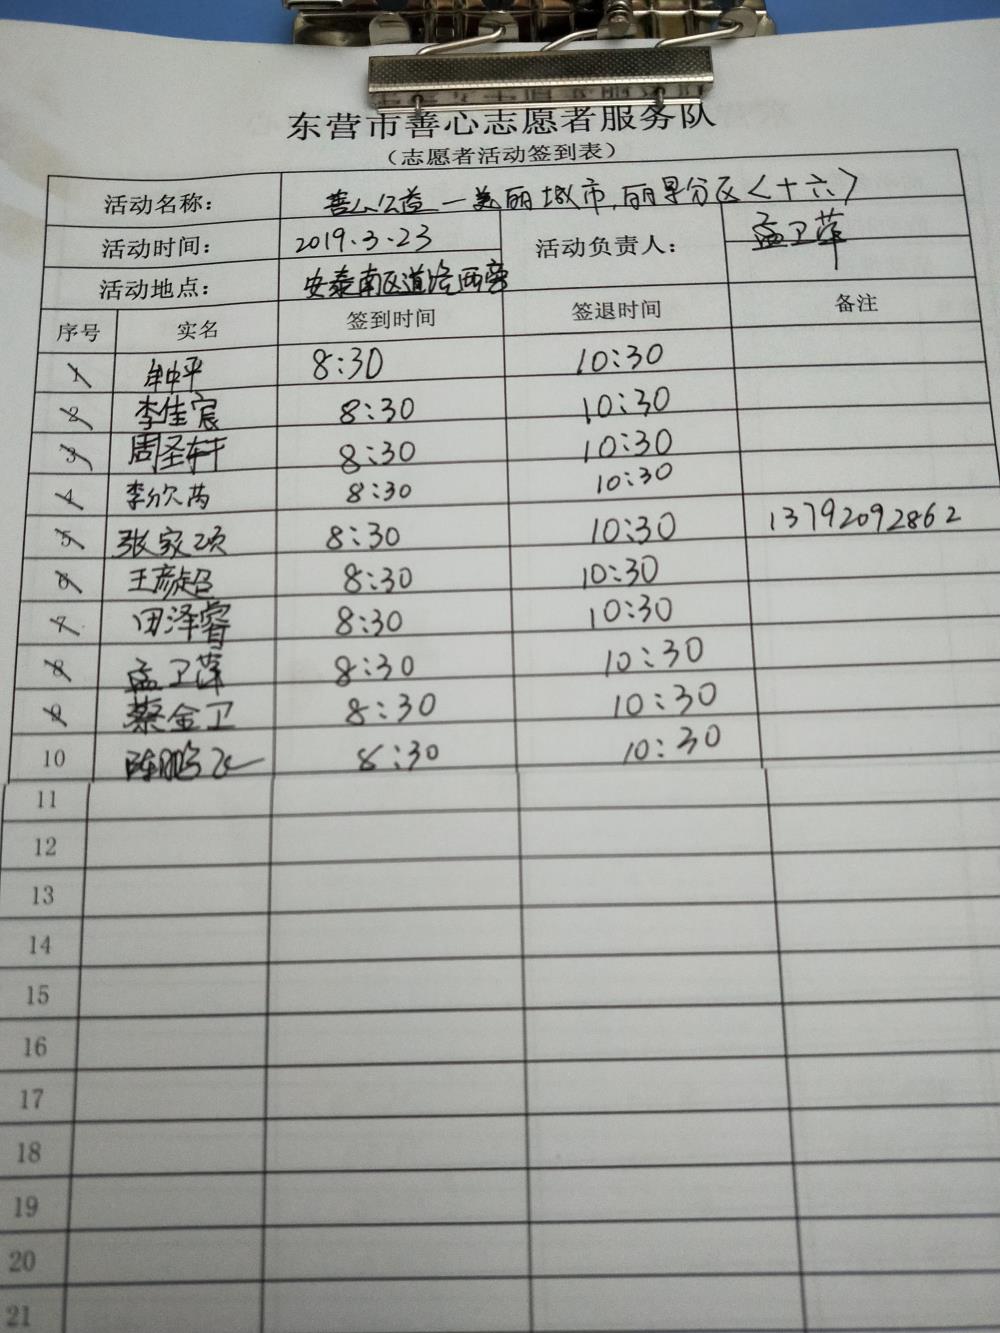 东营市善心志愿者服务队
（志愿者活动签到表）
活动名称： 善心公益一美丽城市,丽早分区〈十六〉
活动时间： 2019.3.23 活动负责人： 孟卫萍
活动地点： 安泰南区道路两旁
序号 实名 签到时间 签退时间 备注
1 牟中平 8:30 10:30
2 李佳宸 8:30 10:30
3 周圣轩 8:30 10:30
4 李欣芮 8:30 10:30
5 张家硕 8:30 10:30 13792092862
6 王彦超 8:30 10:30
7 田泽睿 8:30 10:30
8 孟卫萍 8:30 10:30
9 蔡金卫 8:30 10:30
10 陈鹏飞 8:30 10:30
11
12
13
14
15
16
17
18
19
20
21